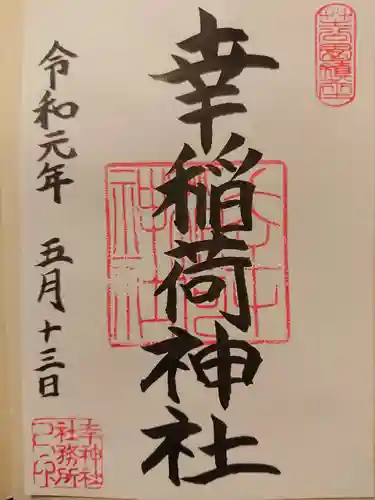 幸稲荷神社
令和元年 五月十三日
幸神社
社務所